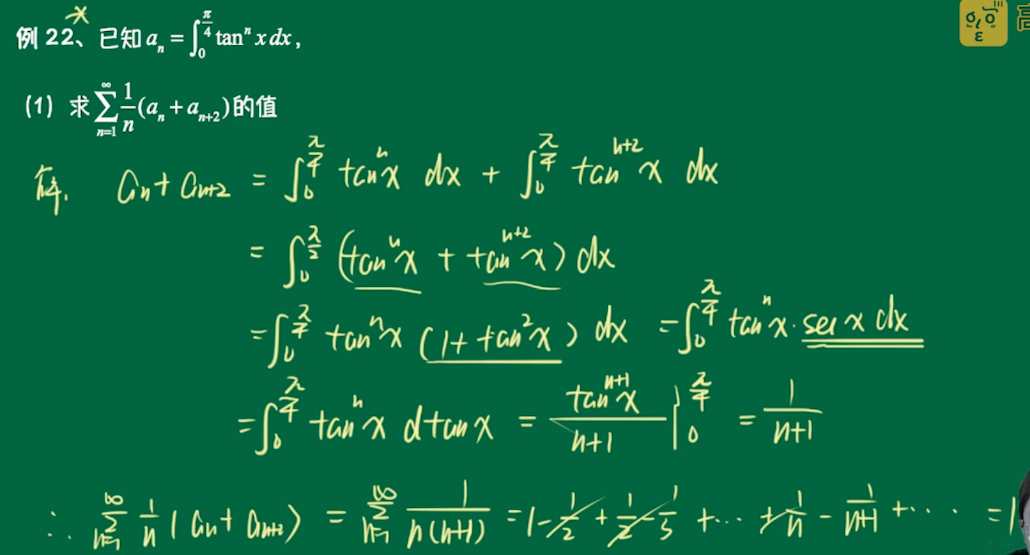 例 22、已知 aₙ = ∫₀^(π/4) tanⁿ x dx，
(1) 求 ∑_(n=1)^∞ 1/n (aₙ + aₙ₊₂) 的值
解. aₙ + aₙ₊₂ = ∫₀^(π/4) tanⁿx dx + ∫₀^(π/4) tanⁿ⁺²x dx
= ∫₀^(π/2) (tanⁿx + tanⁿ⁺²x) dx
= ∫₀^(π/4) tanⁿx (1 + tan²x) dx = ∫₀^(π/4) tanⁿx · sec x dx
= ∫₀^(π/4) tanⁿx d tan x = tanⁿ⁺¹x / (n+1) |₀^(π/4) = 1/(n+1)
∴ ∑_(n=1)^∞ 1/n (aₙ + aₙ₊₂) = ∑_(n=1)^∞ 1/(n(n+1)) = 1 - 1/2 + 1/2 - 1/3 + ··· + 1/n - 1/(n+1) + ···· = 1